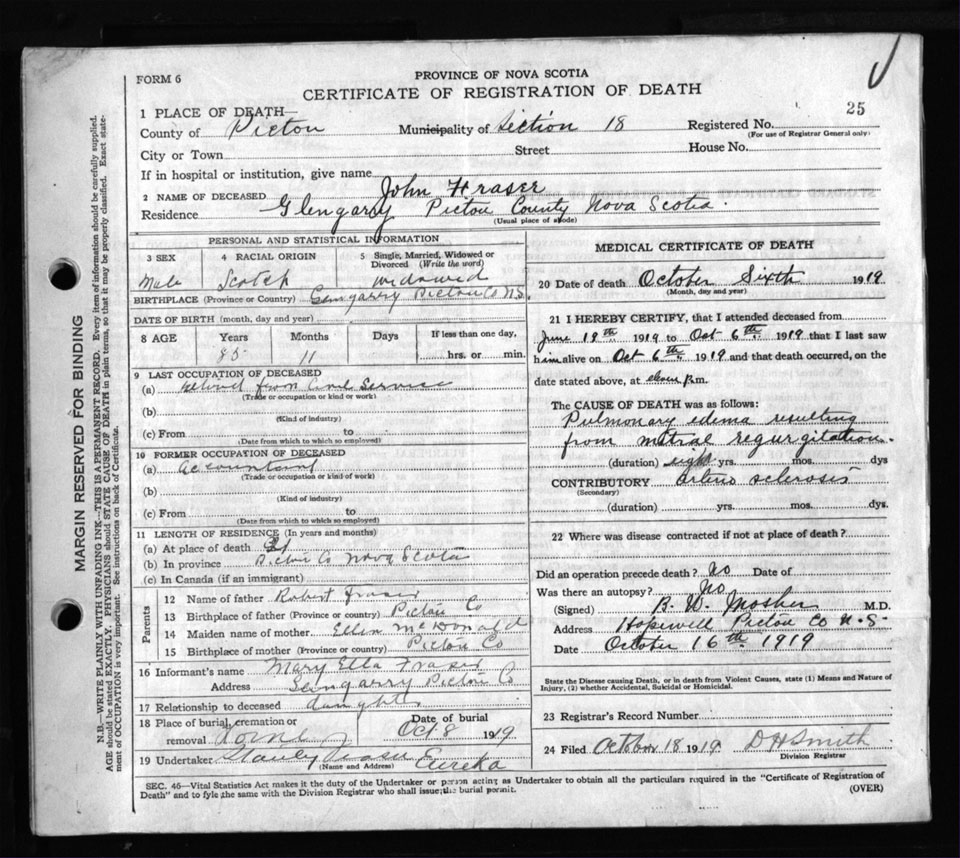 FORM 6
PROVINCE OF NOVA SCOTIA
CERTIFICATE OF REGISTRATION OF DEATH
25
1 PLACE OF DEATH—
County of Pictou Municipality of Section 18 Registered No.
(For use of Registrar General only)
City or Town Street House No.
If in hospital or institution, give name
2 NAME OF DECEASED John Fraser
Residence Glengarry Pictou County Nova Scotia.
(Usual place of abode)
PERSONAL AND STATISTICAL INFORMATION
3 SEX 4 RACIAL ORIGIN 5 Single, Married, Widowed or Divorced (Write the word)
Male Scotch widowed
BIRTHPLACE (Province or Country) Glengarry Pictou Co N.S.
DATE OF BIRTH (month, day and year)
8 AGE Years Months Days If less than one day,
85 11 hrs. or min.
9 LAST OCCUPATION OF DECEASED
(a) Retired from Civil Service
(Trade or occupation or kind or work)
(b)
(Kind of industry)
(c) From to
(Date from which to which so employed)
10 FORMER OCCUPATION OF DECEASED
(a) accountant
(Trade or occupation or kind of work)
(b)
(Kind of industry)
(c) From to
(Date from which to which so employed)
11 LENGTH OF RESIDENCE (In years and months)
(a) At place of death
(b) In province Pictou Co Nova Scotia
(c) In Canada (if an immigrant)
Parents
12 Name of father Robert Fraser
13 Birthplace of father (Province or country) Pictou Co
14 Maiden name of mother Ellen McDonald
15 Birthplace of mother (Province or country) Pictou Co
16 Informant's name Mary Ella Fraser
Address Glengarry Pictou Co
17 Relationship to deceased daught
18 Place of burial, cremation or Date of burial
removal Lorne Oct 8 1919
19 Undertaker Eureka
(Name and Address)
MEDICAL CERTIFICATE OF DEATH
20 Date of death October Sixth 1919
(Month, day and year)
21 I HEREBY CERTIFY, that I attended deceased from
June 19th 1919 to Oct 6th 1919 that I last saw
him alive on Oct 6th 1919 and that death occurred, on the
date stated above, at P.m.
The CAUSE OF DEATH was as follows:
Pulmonary edema resulting
from mitral regurgitation.
(duration) eight yrs. mos. dys
CONTRIBUTORY arterio sclerosis
(Secondary)
(duration) yrs. mos. dys.
22 Where was disease contracted if not at place of death?
Did an operation precede death? No Date of
Was there an autopsy? No
(Signed) B. W. Mosher M.D.
Address Hopewell Pictou Co N.S.
Date October 16th 1919
State the Disease causing Death, or in death from Violent Causes, state (1) Means and Nature of
Injury, (2) whether Accidental, Suicidal or Homicidal.
23 Registrar's Record Number
24 Filed October 18 1919 D H Smith
Division Registrar
SEC. 46—Vital Statistics Act makes it the duty of the Undertaker or person acting as Undertaker to obtain all the particulars required in the "Certificate of Registration of
Death" and to fyle the same with the Division Registrar who shall issue the burial permit.
(OVER)
MARGIN RESERVED FOR BINDING
N.B.—WRITE PLAINLY WITH UNFADING INK—THIS IS A PERMANENT RECORD. Every item of information should be carefully supplied.
AGE should be stated EXACTLY. PHYSICIANS should STATE CAUSE OF DEATH in plain terms, so that it may be properly classified. Exact state-
ment of OCCUPATION is very important. See instructions on back of Certificate.